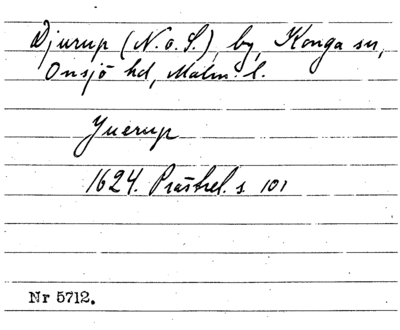 Djurup (N. o. S.), by, Konga sn,
Onsjö hd, Malm. l.
Juerup
1624. Prästrel. s. 101
Nr 5712.